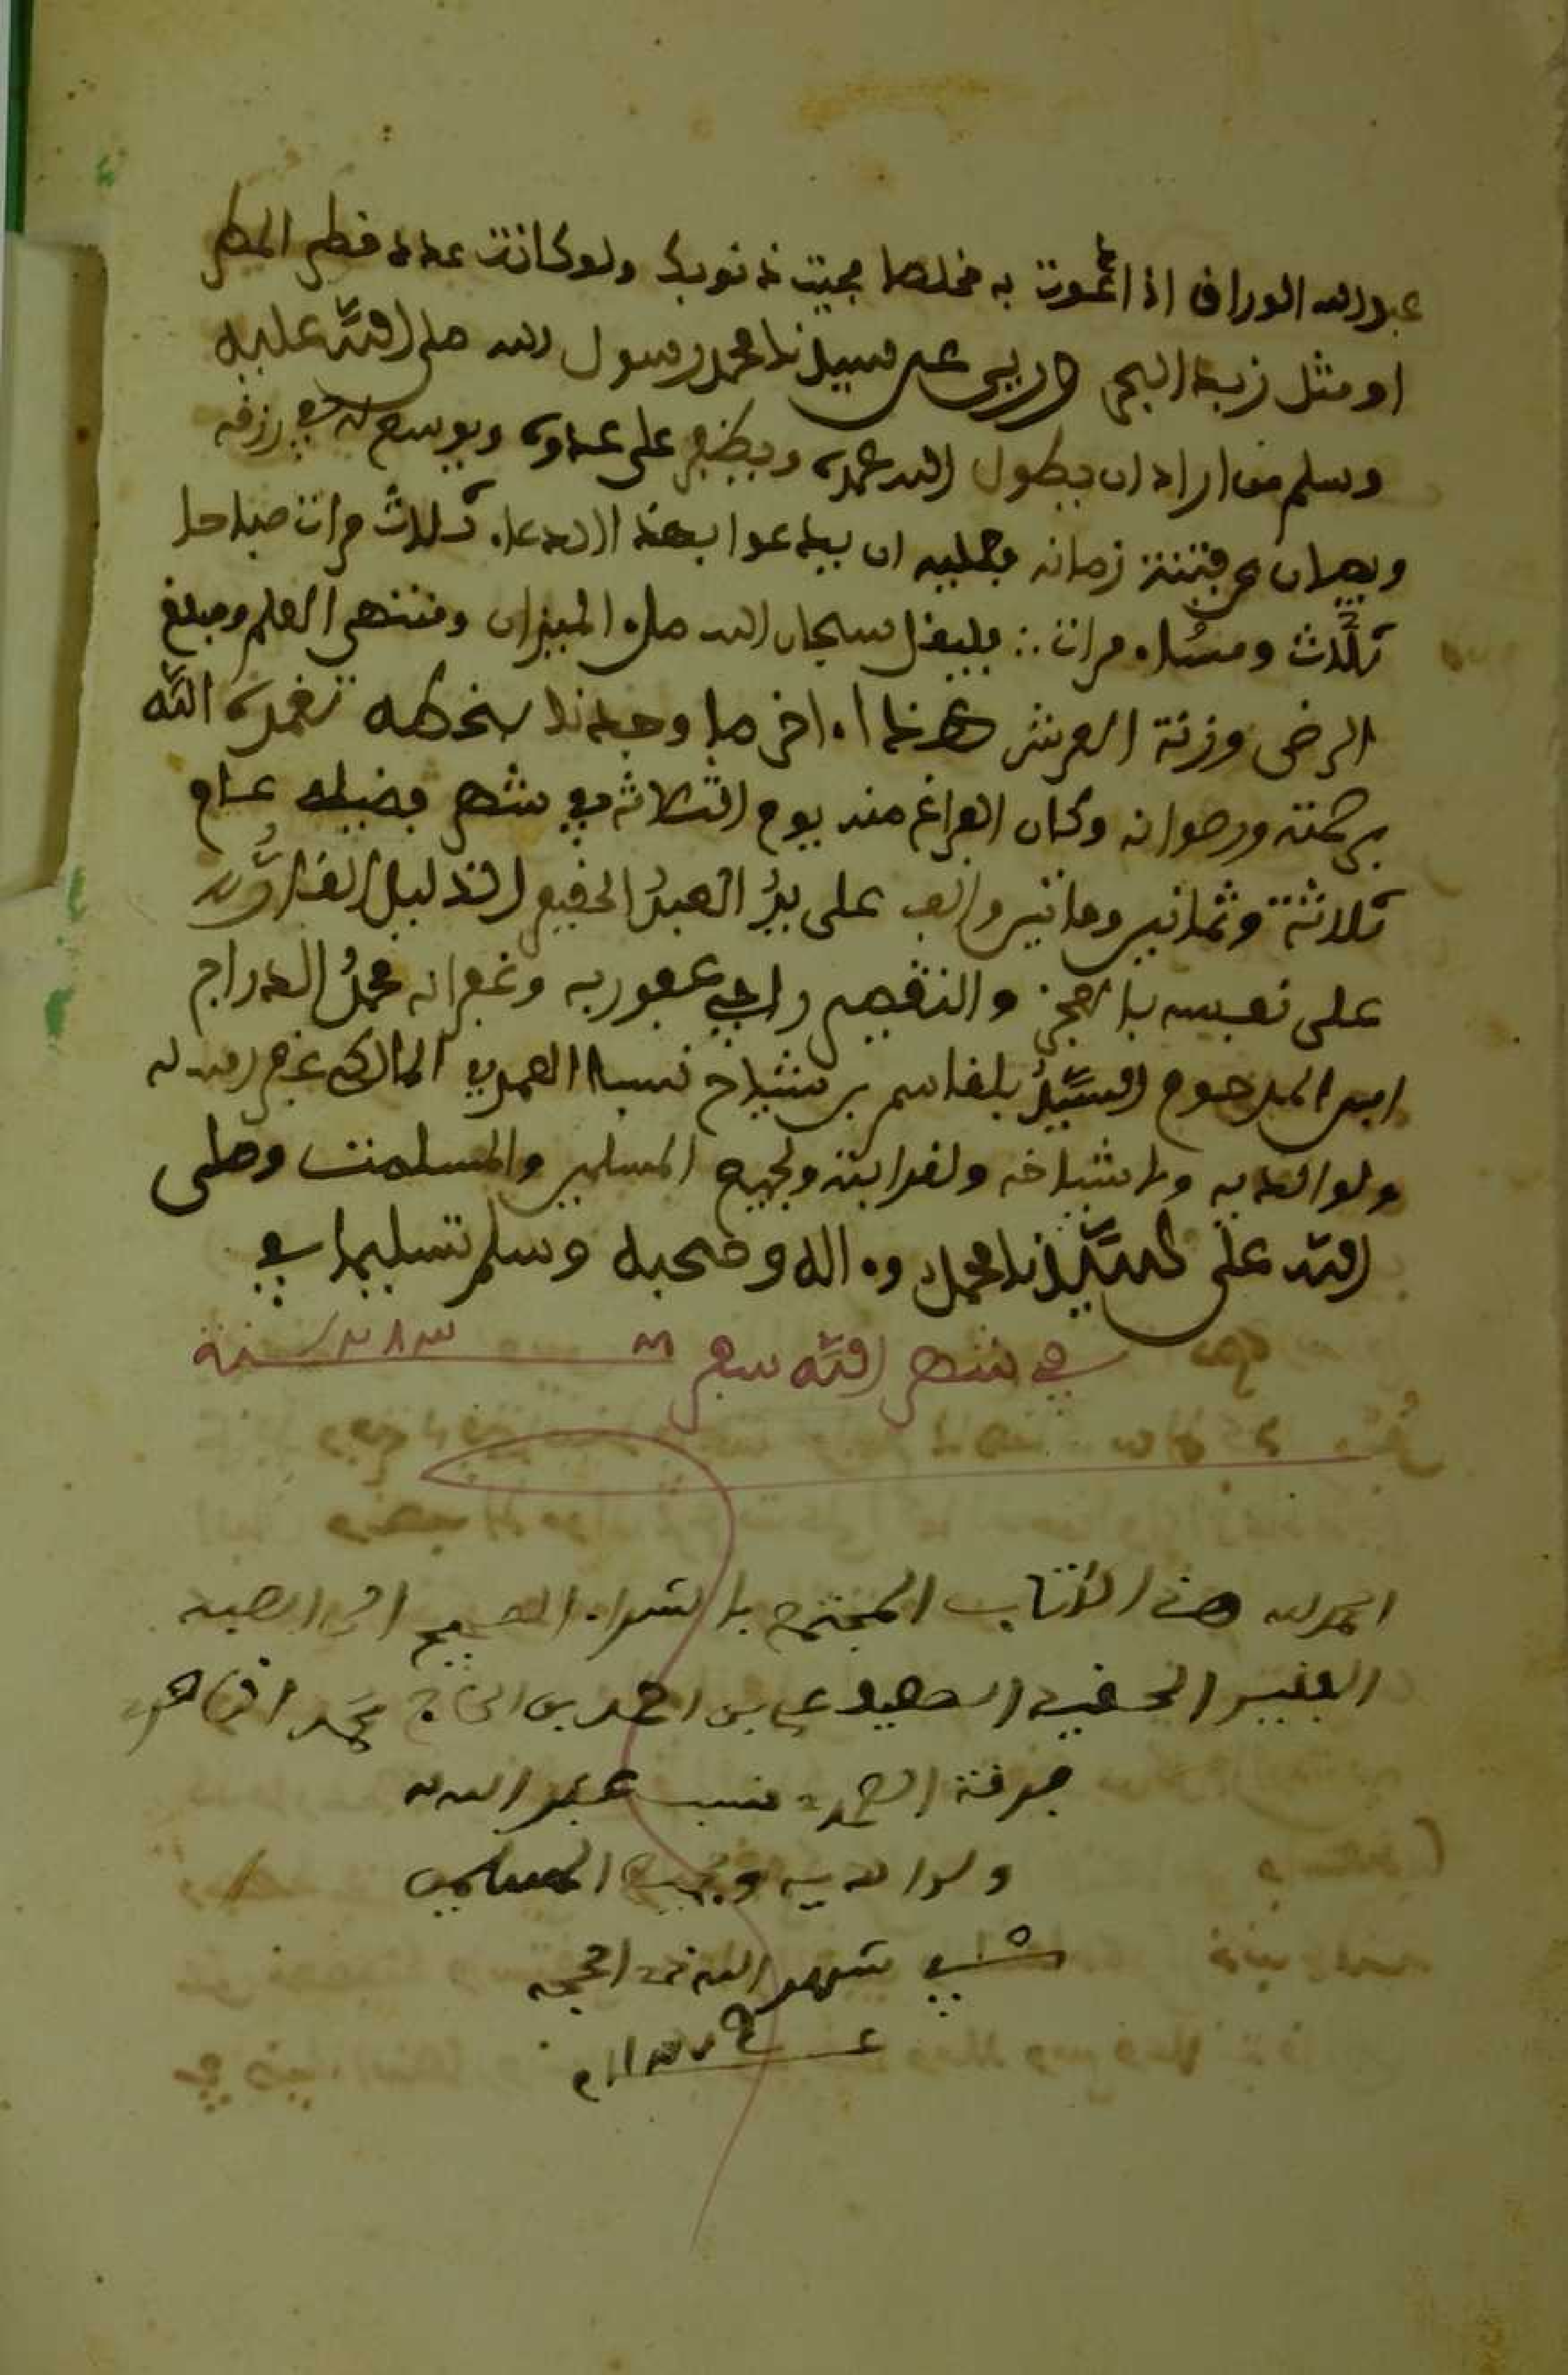 عبد الله الوراق اذا دعوت به مخلصا محيت ذنوبك ولو كانت عدد قطر المطر
او مثل زبد البحر وروي عن سيدنا محمد رسول الله صلى الله عليه
وسلم من اراد ان يطول الله عمره ويظفر على عدوه ويوسع له في رزقه
ويصان من فتنة زمانه فعليه ان يدعوا بهذا الدعاء ثلاث مرات صباحا
ثلاث ومساء مرات ∴ فليقل سبحان الله ملء الميزان ومنتهى العلم ومبلغ
الرضى وزنة العرش هذا اخر ما وجدنا بخطه تغمده الله
برحمته ورضوانه وكان الفراغ منه يوم الثلاثه في شهر فضيله عام
ثلاثة وثمانين وماتين والف على يد العبد الحقير الذليل
على نفسه بالعجز والتقصير راجي عفو ربه وغفرانه محمد الدراج
ابن المرحوم السيد بلقاسم بن شياخ نسبا العمري المالكي غفر الله له
ولوالديه ولاشياخه ولقرابته ولجميع المسلمين والمسلمت وصلى
الله على سيدنا محمد وءاله وصحبه وسلم تسليما في
في شهر الله سفر ٣٨٣ سنة
الحمد لله هذا الكتاب المحترم بالشراء الصحيح الى العبد
الفقير الحقير السعيد علي بن احمد بن الحاج محمد
حرفة نسب غفر الله له
ولوالديه وجميع المسلمين
شهر الله ذي الحجة